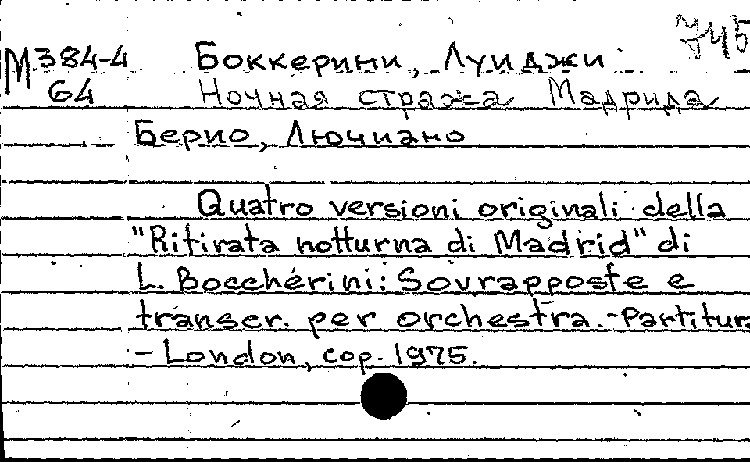 745
М384-4 Боккерини, Луиджи
64 Ночная стража Мадрида
Берио, Лючиано
Quatro versioni originali della
"Ritirata notturna di Madrid" di
L. Boccherini: Sovrapposte e
transcr. per orchestra.-Partitur
- London, cop. 1975.